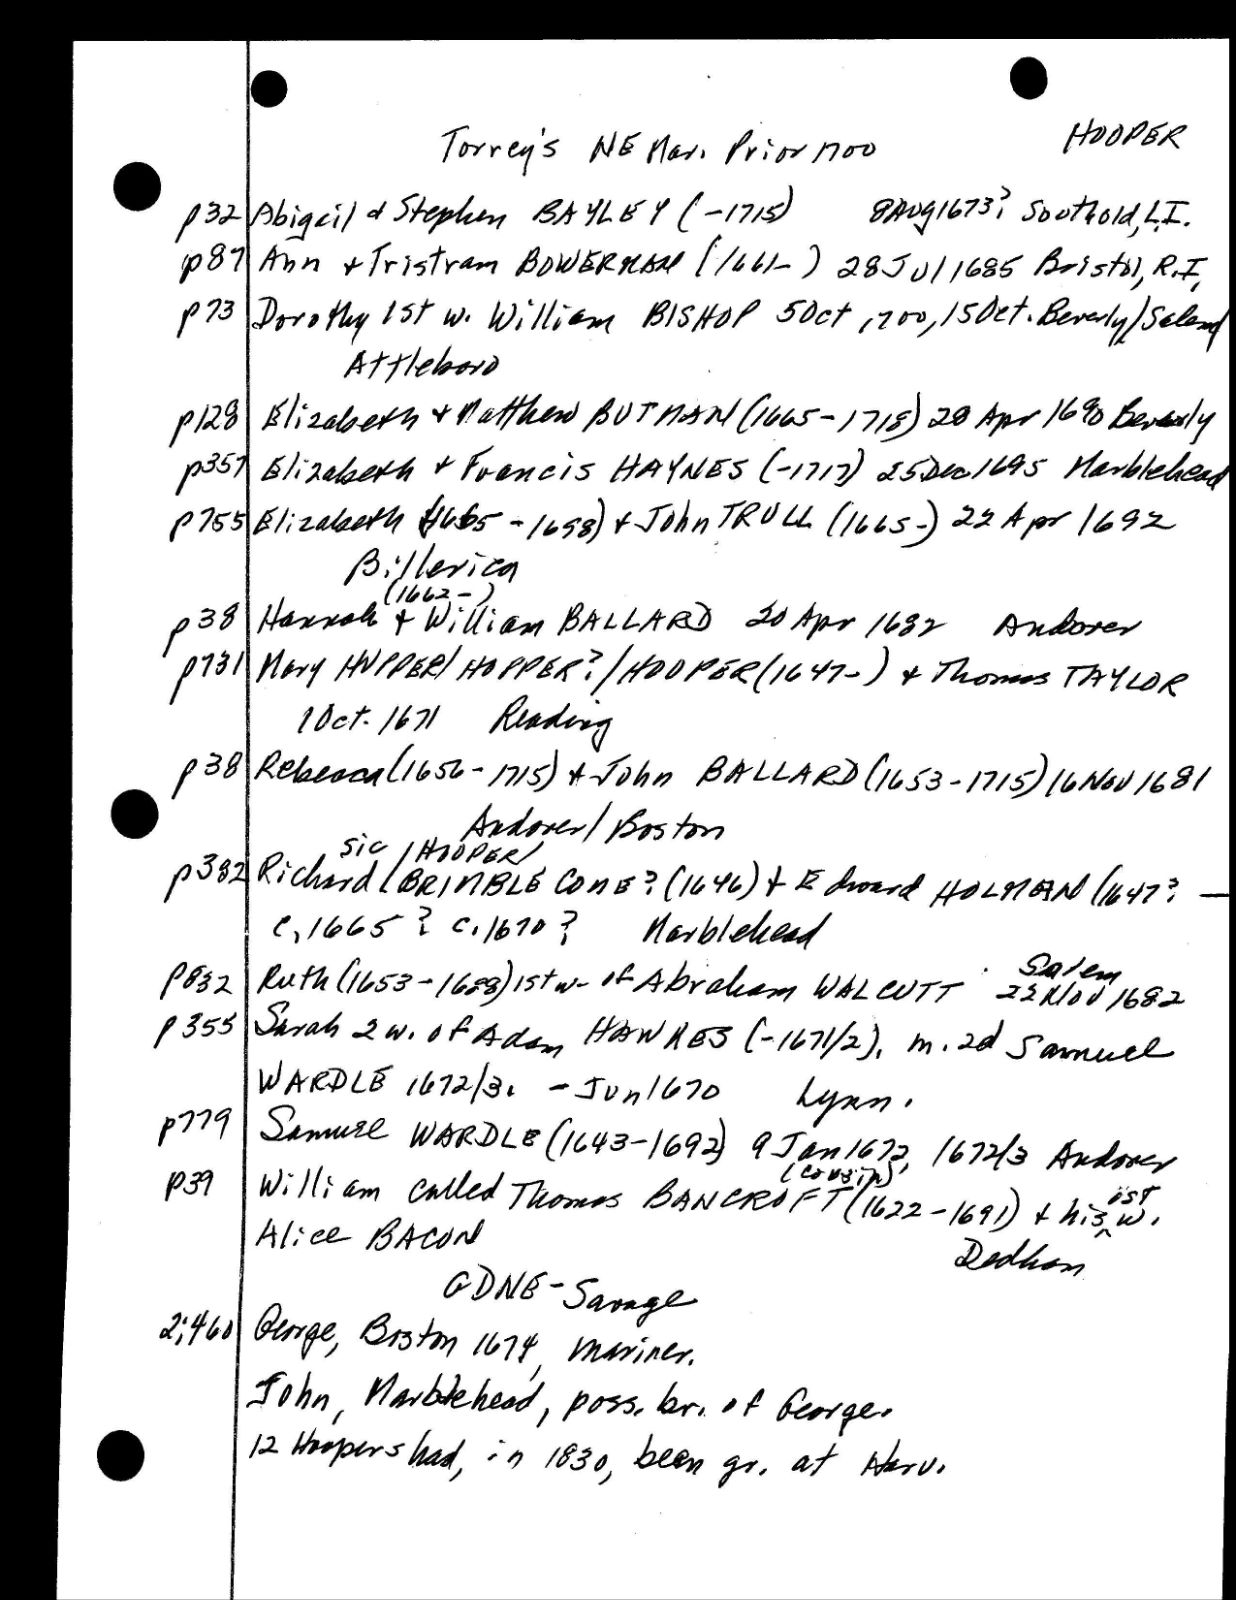 HOOPER
Torrey's NE Mar. Prior 1700
p32 Abigail & Stephen BAYLEY (-1715) 8Aug1673? Southold, L.I.
p87 Ann + Tristram BOWERMAN (1661- ) 28 Jul 1685 Bristol, R.I.
p73 Dorothy 1st w. William BISHOP 5Oct 1700, 15Oct. Beverly/Salem/
Attleboro
p128 Elizabeth + Matthew BUTMAN (1665-1718) 28 Apr 1690 Beverly
p357 Elizabeth + Francis HAYNES (-1717) 25Dec1695 Marblehead
p755 Elizabeth (1665-1698) + John TRULL (1665-) 22 Apr 1692
Billerica
(1662-)
p38 Hannah + William BALLARD 20 Apr 1682 Andover
p731 Mary HUPPER/HOPPER?/HOOPER (1647-) + Thomas TAYLOR
1Oct. 1671 Reading
p38 Rebecca (1656-1715) + John BALLARD (1653-1715) 16Nov 1681
Andover/Boston
sic /HOOPER/
p382 Richard /BRIMBLECOME? (1646) + Edward HOLMAN (1647? —
c.1665? c.1670? Marblehead
p832 Ruth (1653-1688) 1st w- of Abraham WALCUTT Salem
22 Nov 1682
p355 Sarah 2 w. of Adam HAWKES (-1671/2), m. 2d Samuel
WARDLE 1672/3. - Jun 1670 Lynn.
p779 Samuel WARDLE (1643-1692) 9 Jan 1672, 1672/3 Andover
(cousin)
p39 William called Thomas BANCROFT (1622-1691) + his 1st w.
Alice BACON Dedham
GDNE-Savage
2;460 George, Boston 1674, mariner.
John, Marblehead, poss. br. of George.
12 Hoopers had, in 1830, been gr. at Harv.